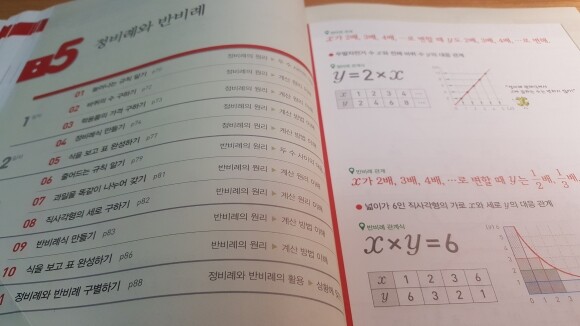 5 정비례와 반비례
1
01 늘어나는 규칙 알기
정비례의 원리
02 바퀴의 수 구하기
정비례의 원리 ▶ 계산 방법
03 학용품의 가격 구하기 p73
정비례의 원리 ▶ 계산 방법
04 정비례식 만들기 p76
정비례의 원리 ▶ 계산 방법 이해
2
05 식을 보고 표 완성하기 p77
정비례의 원리 ▶ 계산 방법 이해
06 줄어드는 규칙 알기 p79
반비례의 원리 ▶ 두 수 사이의
07 과일을 똑같이 나누어 갖기 p81
반비례의 원리 ▶ 계산 방법 이해
08 직사각형의 세로 구하기 p82
반비례의 원리 ▶ 계산 방법 이해
09 반비례식 만들기 p83
반비례의 원리 ▶ 계산 방법 이해
10 식을 보고 표 완성하기 p86
반비례의 원리 ▶ 계산 방법 이해
1 정비례와 반비례 구별하기 p88
정비례와 반비례의 활용 ▶ 상황에
x가 2배, 3배, 4배, …로 변할 때 y도 2배, 3배, 4배, …로 변해.
수 x와 수 y의 대응 관계
정비례 관계식
y=2×x
x 1 2 3 4 …
y 2 4 6 8 …
반비례 관계
x가 2배, 3배, 4배, …로 변할 때 y는 1/2배, 1/3배,
넓이가 6인 직사각형의 가로 x와 세로 y의 대응 관계
반비례 관계식
x×y=6
x 1 2 3 6
y 6 3 2 1
5
4
3
2
1
0